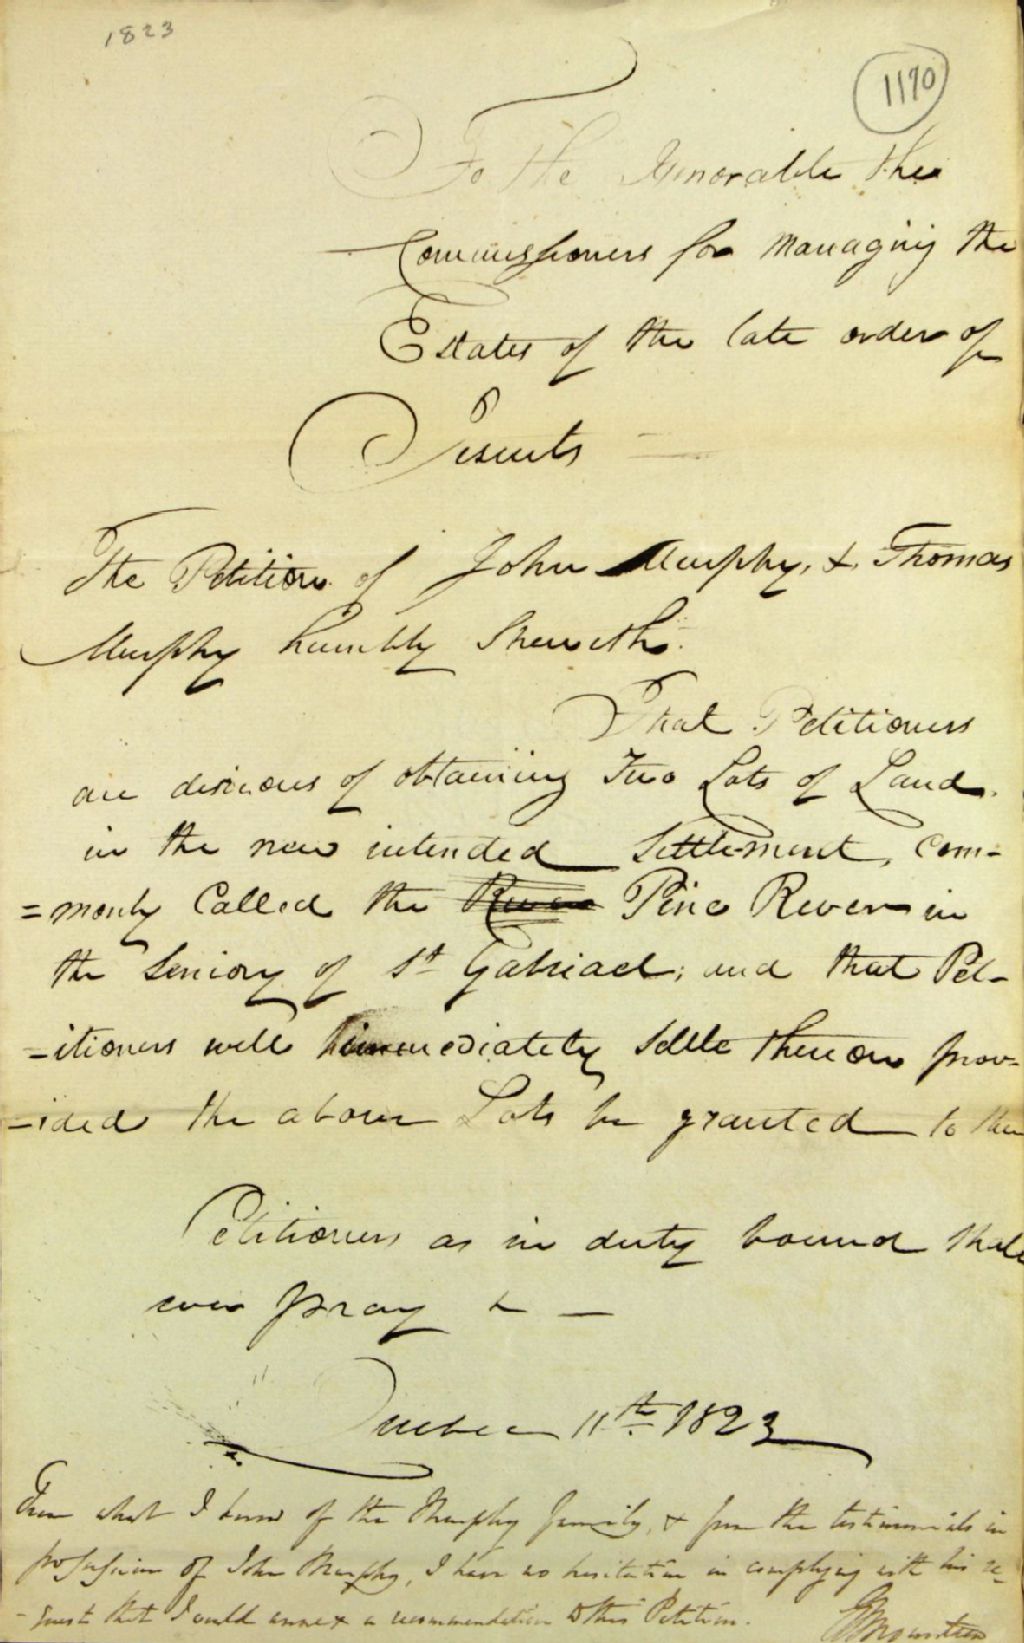 1823
1170
To the Honorable the
Commissioners for Managing the
Estates of the late order of
Jesuits
The Petition of John Murphy, & Thomas
Murphy humbly Sheweth.
That Petitioners
are desirous of obtaining Two Lots of Land
in the new intended Settlement, com-
=monly Called the River Pine River in
the Seniory of St Gabriael, and that Pet-
=itioners will immediately Settle thereon prov-
=ided the above Lots be granted to them
Petitioners as in duty bound shall
ever pray &
Quebec 11th 1823
From what I know of the Murphy family, & from the testimonials in
possession of John Murphy, I have no hesitation in complying with his re-
-quest that I would annex a recommendation to this Petition.